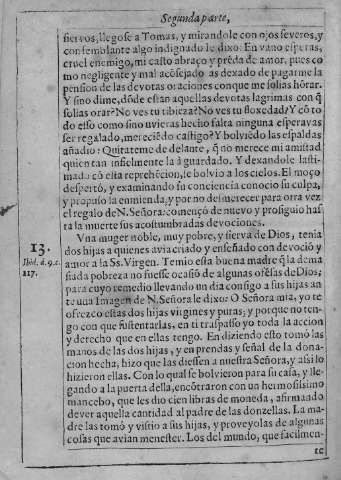 Segunda parte,
siervos, llegose a Tomas, y mirandole con ojos severos, y
con semblante algo indignado le dixo: En vano esperas,
cruel enemigo, mi casto abraço y prẽda de amor, pues co
mo negligente y mal acõsejado as dexado de pagarme la
pension de las devotas oraciones con que me solias hõrar.
Y sino dime, dõde estan aquellas devotas lagrimas con q̃
solias orar? No ves tu tibieza? No ves tu floxedad? Y cõ to
do esso como sino uvieras hecho falta ninguna esperavas
ser regalado, mereciẽdo castigo? Y bolviẽdo las espaldas
añadio: Quitateme de delante, q̃ no merece mi amistad
quien tan infielmente la à guardado. Y dexandole lasti-
mado cõ esta reprehẽcion, le bolvio a los cielos. El moço
despertò, y examinando su conciencia conocio su culpa,
y propuso la enmienda, y por no desmerecer para otra vez
el regalo de N. Señora: començò de nuevo y prosiguio has
ta la muerte sus acostumbradas devociones.
13.
Ibid. d. 9. c.
117.
Vna muger noble, muy pobre, y sierva de Dios, tenia
dos hijas a quienes avia criado y enseñado con devociõ y
amor a la Ss. Virgen. Temio esta buena madre q̃ la dema
siada pobreza no fuesse ocasiõ de algunas ofẽsas de Dios;
para cuyo remedio llevando un dia consigo a sus hijas an
te una Imagen de N. Señora le dixo: O Señora mia, yo te
ofrezco estas dos hijas virgines y puras; y porque no ten-
go con que sustentarlas, en ti traspasso yo toda la accion
y derecho que en ellas tengo. En diziendo esto tomò las
manos de las dos hijas, y en prendas y señal de la dona-
cion hecha, hizo que las diessen a nuestra Señora, y assi lo
hizieron ellas. Con lo qual se bolvieron para su casa, y lle-
gando a la puerta della, encõtraron con un hermosissimo
mancebo, que les dio cien libras de moneda, afirmando
dever aquella cantidad al padre de las donzellas. La ma-
dre las tomò y vistio a sus hijas, y proveyolas de algunas
cosas que avian menester. Los del mundo, que facilmen-
te